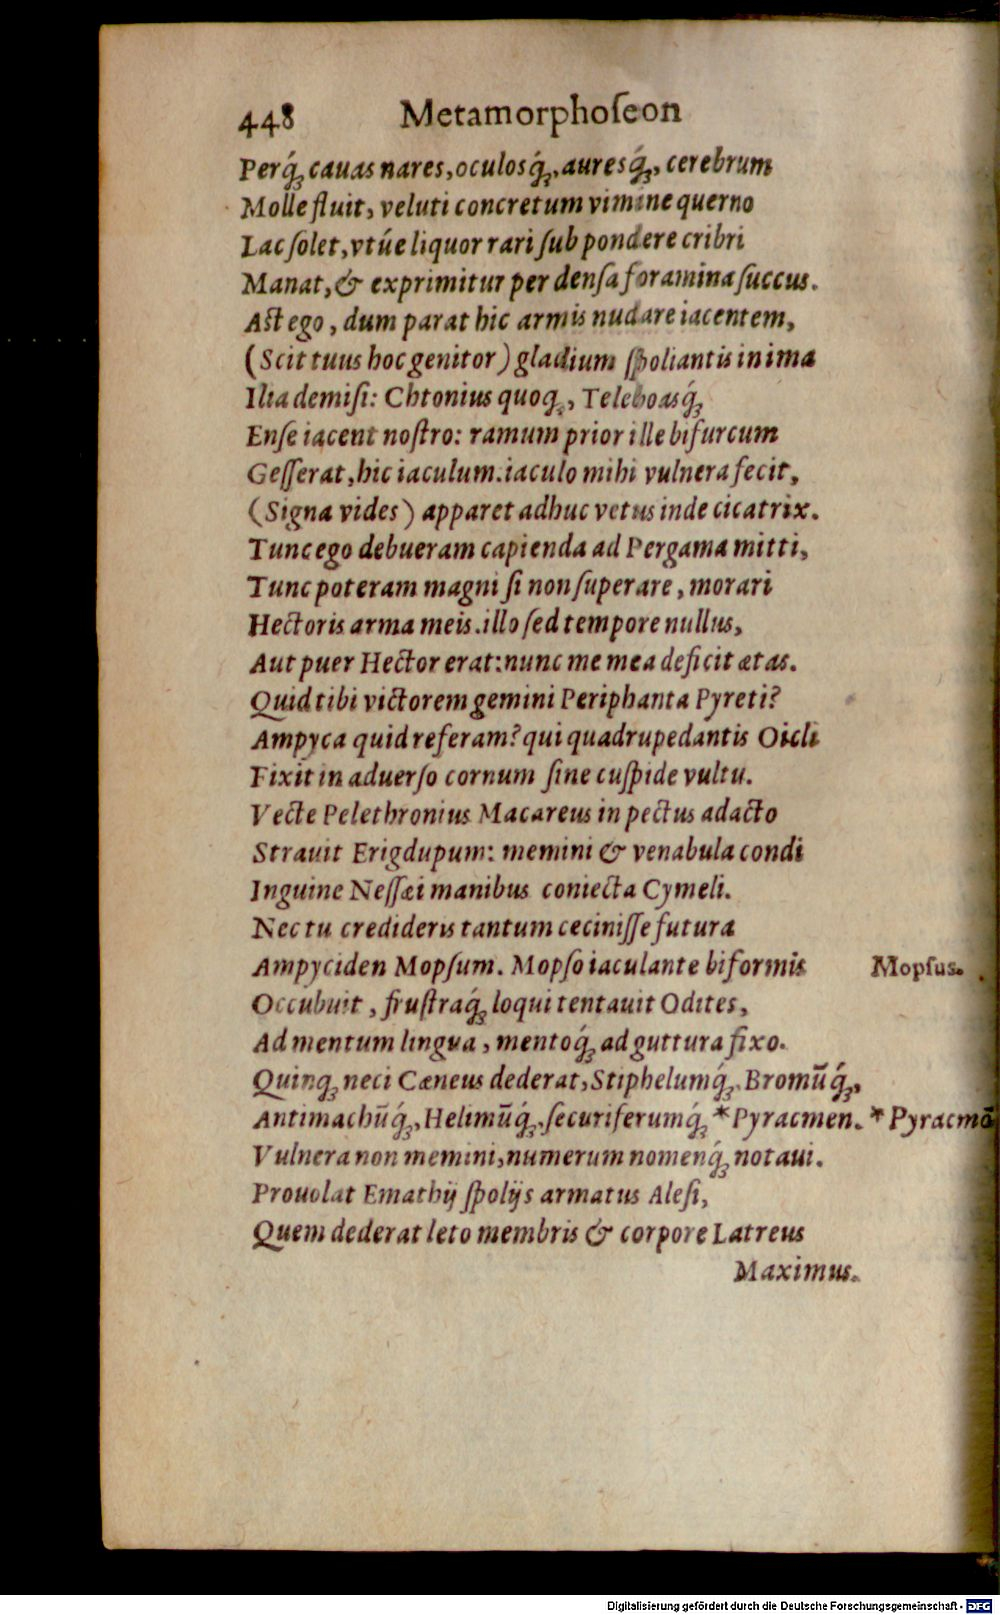 448 Metamorphoſeon
Perq́ꝫ cauas nares, oculosq́ꝫ, auresq́ꝫ, cerebrum
Molle fluit, veluti concretum vimine querno
Lac ſolet, vtúe liquor rari ſub pondere cribri
Manat, & exprimitur per denſa foramina ſuccus.
Aſt ego, dum parat hic armis nudare iacentem,
(Scit tuus hoc genitor) gladium ſpoliantis in ima
Ilia demiſi: Chtonius quoqꝫ, Teleboasq́ꝫ
Enſe iacent noſtro: ramum prior ille bifurcum
Geſſerat, hic iaculum. iaculo mihi vulnera fecit,
(Signa vides) apparet adhuc vetus inde cicatrix.
Tunc ego debueram capienda ad Pergama mitti,
Tunc poteram magni ſi non ſuperare, morari
Hectoris arma meis. illo ſed tempore nullus,
Aut puer Hector erat: nunc me mea deficit ætas.
Quid tibi victorem gemini Periphanta Pyreti?
Ampyca quid referam? qui quadrupedantis Oicli
Fixit in aduerſo cornum ſine cuſpide vultu.
Vecte Pelethronius Macareus in pectus adacto
Strauit Erigdupum: memini & venabula condi
Inguine Neſſæi manibus coniecta Cymeli.
Nec tu credideris tantum ceciniſſe futura
Ampyciden Mopſum. Mopſo iaculante biformis Mopſus.
Occubuit, fruſtraq́ꝫ loqui tentauit Odites,
Ad mentum lingua, mentoq́ꝫ ad guttura fixo.
Quinqꝫ neci Cæneus dederat, Stiphelumq́ꝫ, Bromūq́ꝫ,
Antimachūq́ꝫ, Helimūq́ꝫ, ſecuriferumq́ꝫ *Pyracmen. *Pyracmō
Vulnera non memini, numerum nomenq́ꝫ notaui.
Prouolat Emathij ſpolijs armatus Aleſi,
Quem dederat leto membris & corpore Latreus
Maximus.
Digitalisierung gefördert durch die Deutsche Forschungsgemeinschaft - DFG